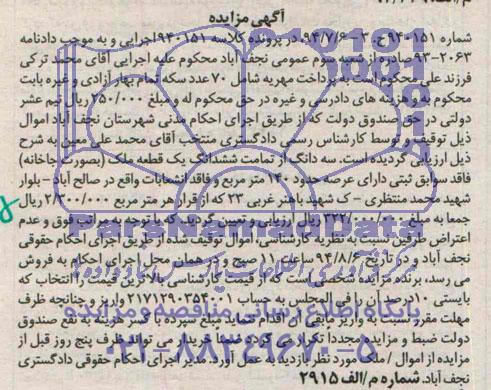 آگهی مزایده
شماره ۹۴۰۱۵۱ ح ۳-۹۴/۷/۶ در پرونده کلاسه ۹۴۰۱۵۱ اجرایی و به موجب دادنامه
۹۳-۲۰۶۳ صادره از شعبه سوم عمومی نجف آباد محکوم علیه اجرایی آقای محمد ترکی
فرزند علی محکوم است به پرداخت مهریه شامل ۷۰ عدد سکه تمام بهار آزادی و غیره بابت
محکوم به و هزینه های دادرسی و غیره در حق محکوم له و مبلغ ۲۵۰/۰۰۰ ریال نیم عشر
دولتی در حق صندوق دولت که از طریق اجرای احکام مدنی شهرستان نجف آباد اموال
ذیل توقیف و توسط کارشناس رسمی دادگستری منتخب آقای محمد علی معین به شرح
ذیل ارزیابی گردیده است. سه دانگ از تمامت ششدانگ یک قطعه ملک (بصورت چاخانه)
فاقد سوابق ثبتی دارای عرصه حدود ۱۴۰ متر مربع و فاقد انشعابات واقع در صالح آباد - بلوار
شهید محمد منتظری - ک شهید باهنر غربی ۲۳ که از قرار هر متر مربع ریال
جمعا به مبلغ ریال ارزیابی و تعیین گردید که با توجه به مراتب فوق و عدم
اعتراض طرفین نسبت به نظریه کارشناسی، اموال توقیف شده از طریق اجرای احکام حقوقی
نجف آباد و در تاریخ ۹۴/۸/۶ ساعت ۱۱ صبح و در همان محل اجرای احکام به فروش
می رسد، برنده مزایده شخصی است که از قیمت کارشناسی بالاترین قیمت را انتخاب که
بایستی ۱۰ درصد آن را فی المجلس به حساب ۲۱۷۱۲۹۰۳۵۴۰۰۱ واریز و چنانچه ظرف
مهلت مقرر نسبت به واریز مابقی آن اقدام ننماید مبلغ سپرده با کسر هزینه به نفع صندوق
دولت ضبط و مزایده مجددا تکرار می گردد ضمنا خریدار می تواند ظرف پنج روز قبل از
مزایده از اموال / ملک مورد نظر بازدید به عمل آورد. مدیر اجرای احکام حقوقی دادگستری
نجف آباد. شماره م/الف ۲۹۱۵
ParsNamadData
پایگاه اطلاع رسانی مناقصه و مزایده